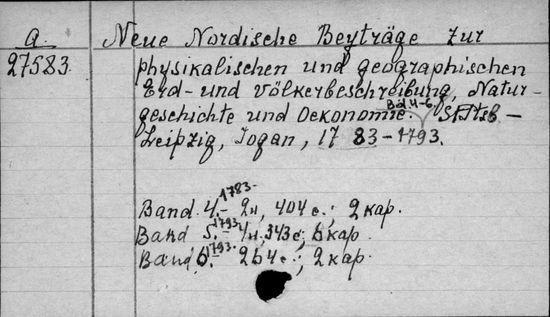 a. Neue Nordische Beyträge zur
27583. physikalischen und geographischen
Erd- und Völkerbeschreibung, Natur-
geschichte und Oekonomie. Bd. 4-6 St. Ptsb -
Leipzig, Logan, 1783-1793.
Band 4.- 1783. 2н, 404 с.; 2 кар.
Band 5.- 1793. 4н, 343 с; 6 кар.
Band 6.- 1793. 264 с.; 2 кар.